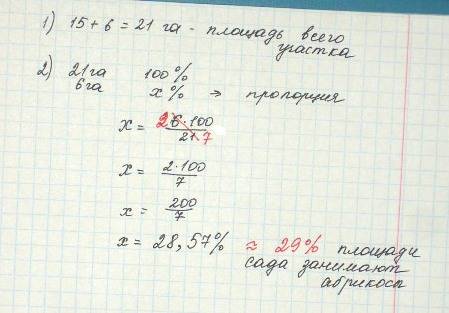 1) 15 + 6 = 21 га - площадь всего
участка
2) 21 га 100%
6 га x% => пропорция
x = 2 6·100 / 21 7
x = 2·100 / 7
x = 200 / 7
x = 28,57% ≈ 29% площади
сада занимают
абрикосы